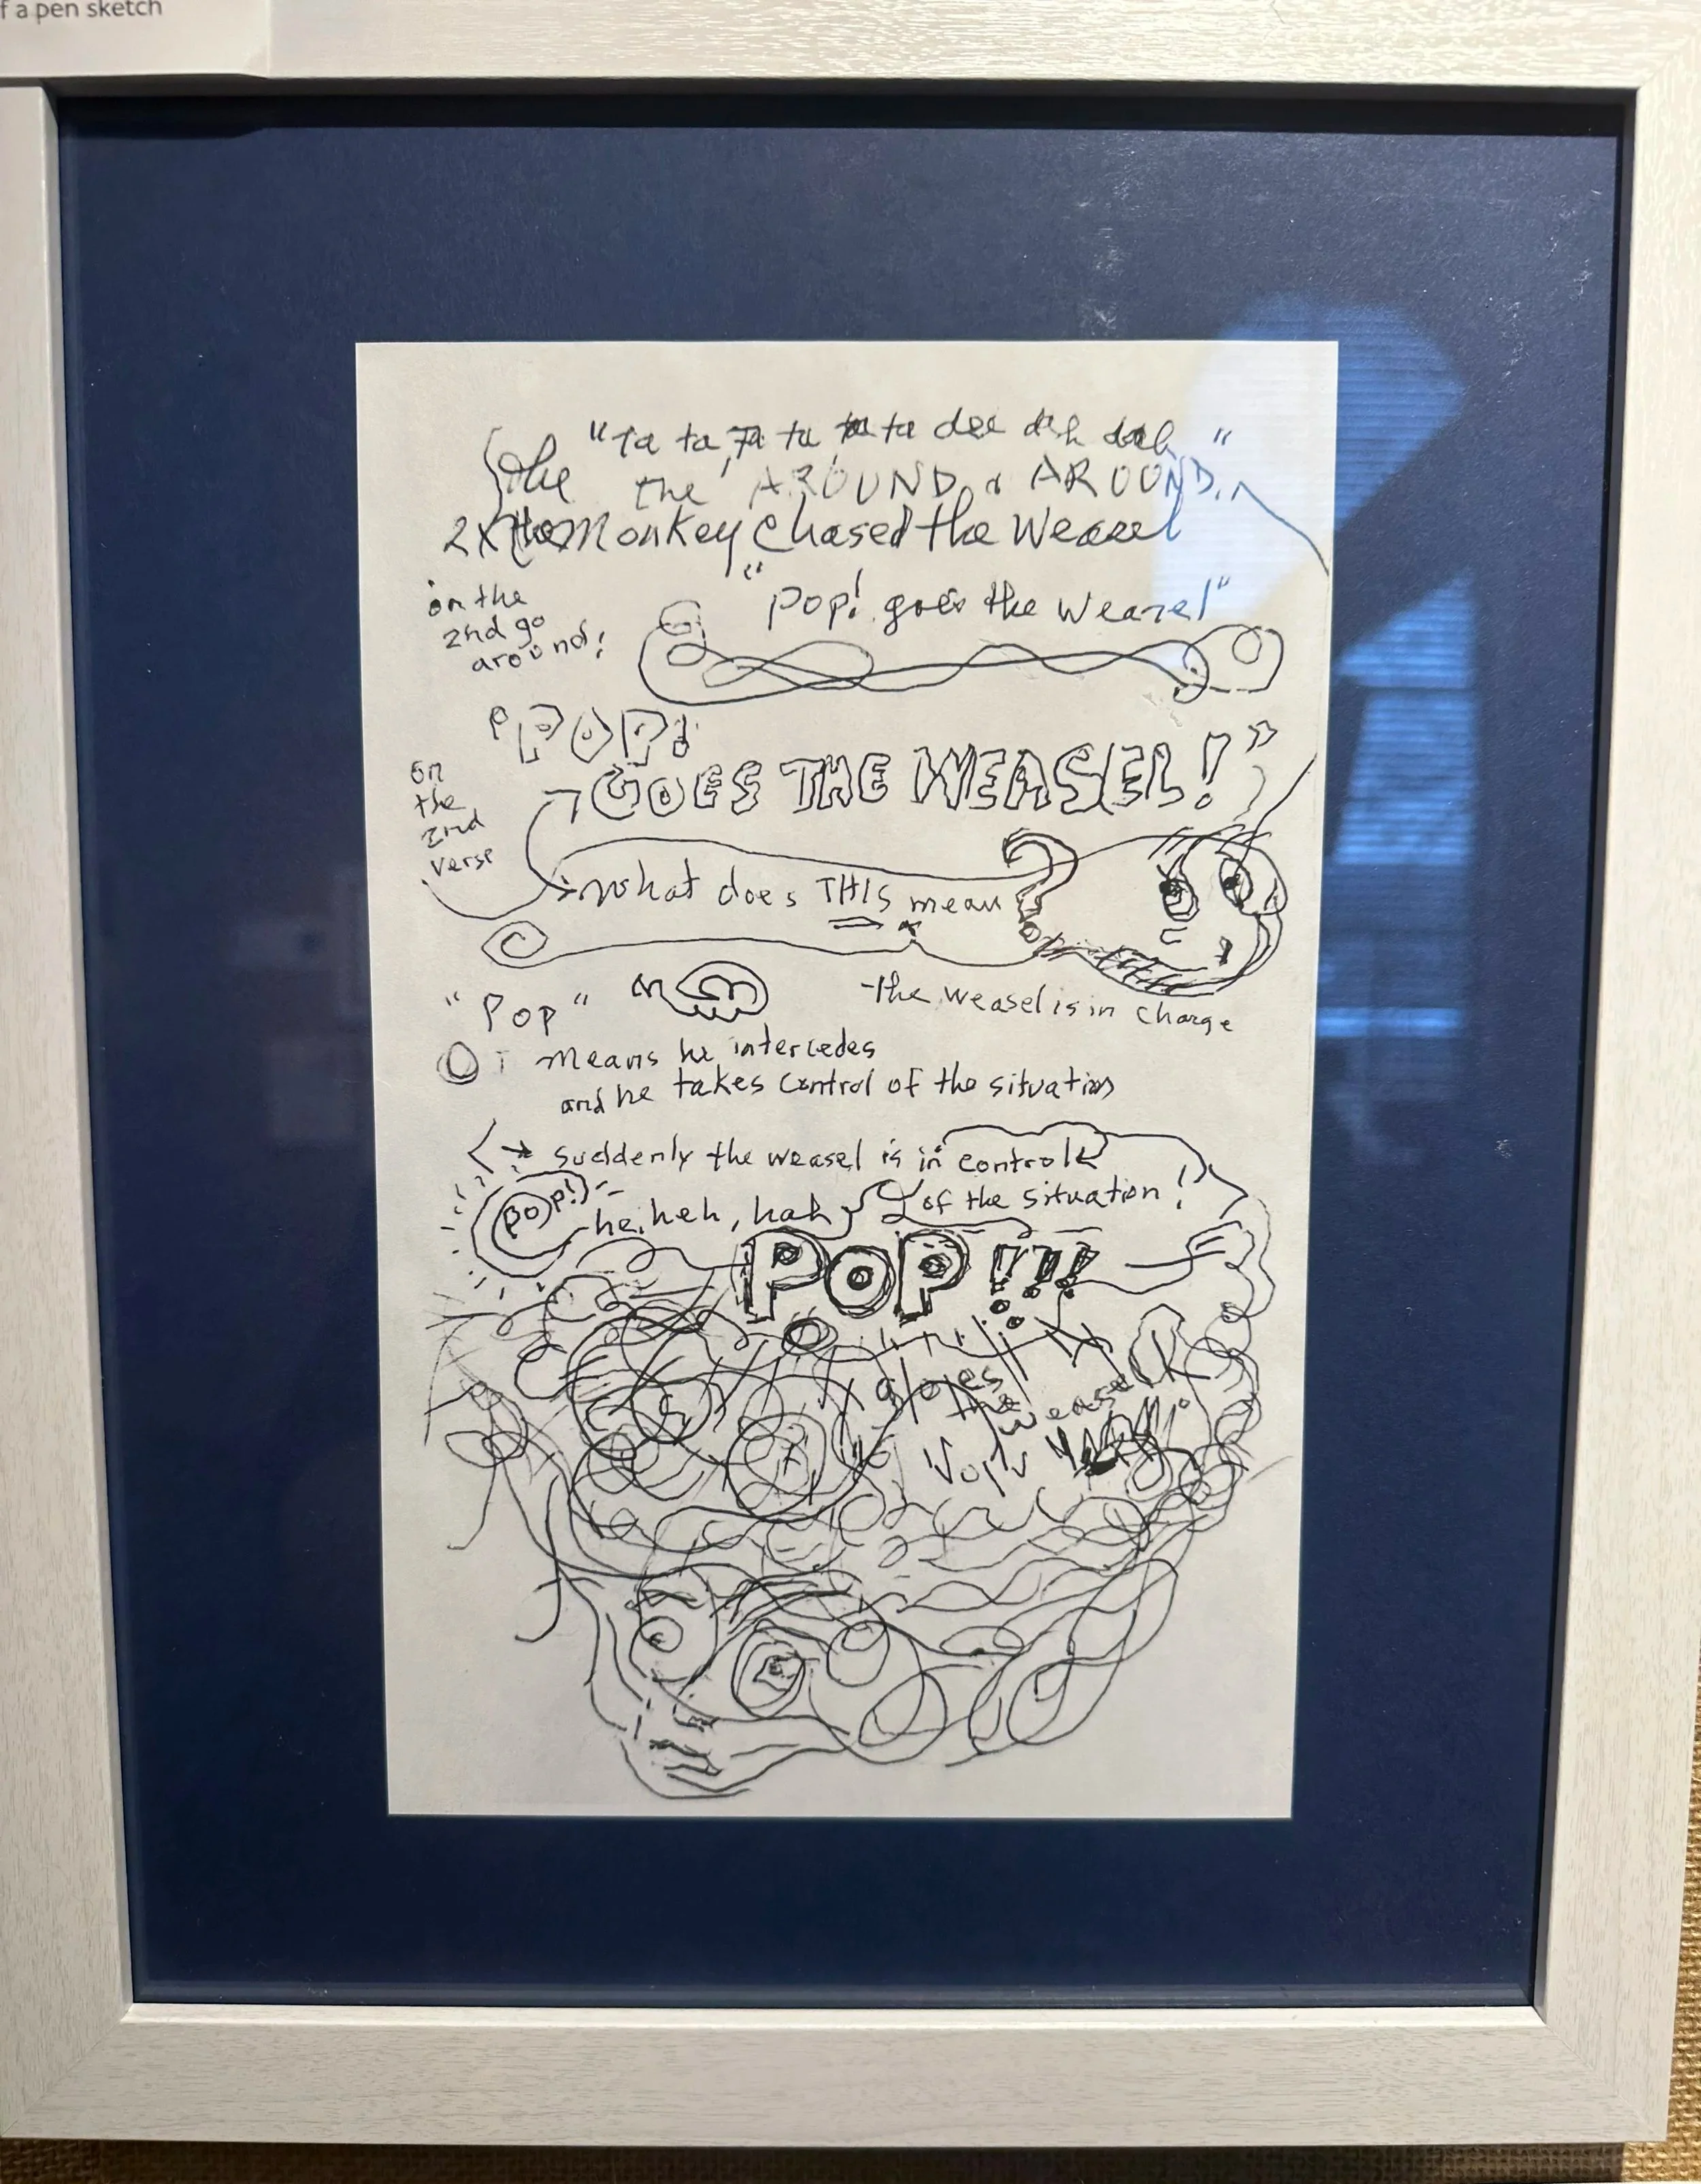 f a pen sketch
"Ta ta, Ta ta, ta ta dee dah dah"
the the AROUND & AROUND
2X the Monkey Chased the Weasel
on the
2nd go
around!
"Pop! goes the Weazel"
POP!
GOES THE WEASEL!"
on
the
2nd
verse
What does THIS mean?
"Pop"
-The Weasel is in Charge
means he intercedes
and he takes control of the situation
Suddenly the weasel is in control
of the situation!
Pop!
he. heh, hah
POP!!!
goes
the
weasel